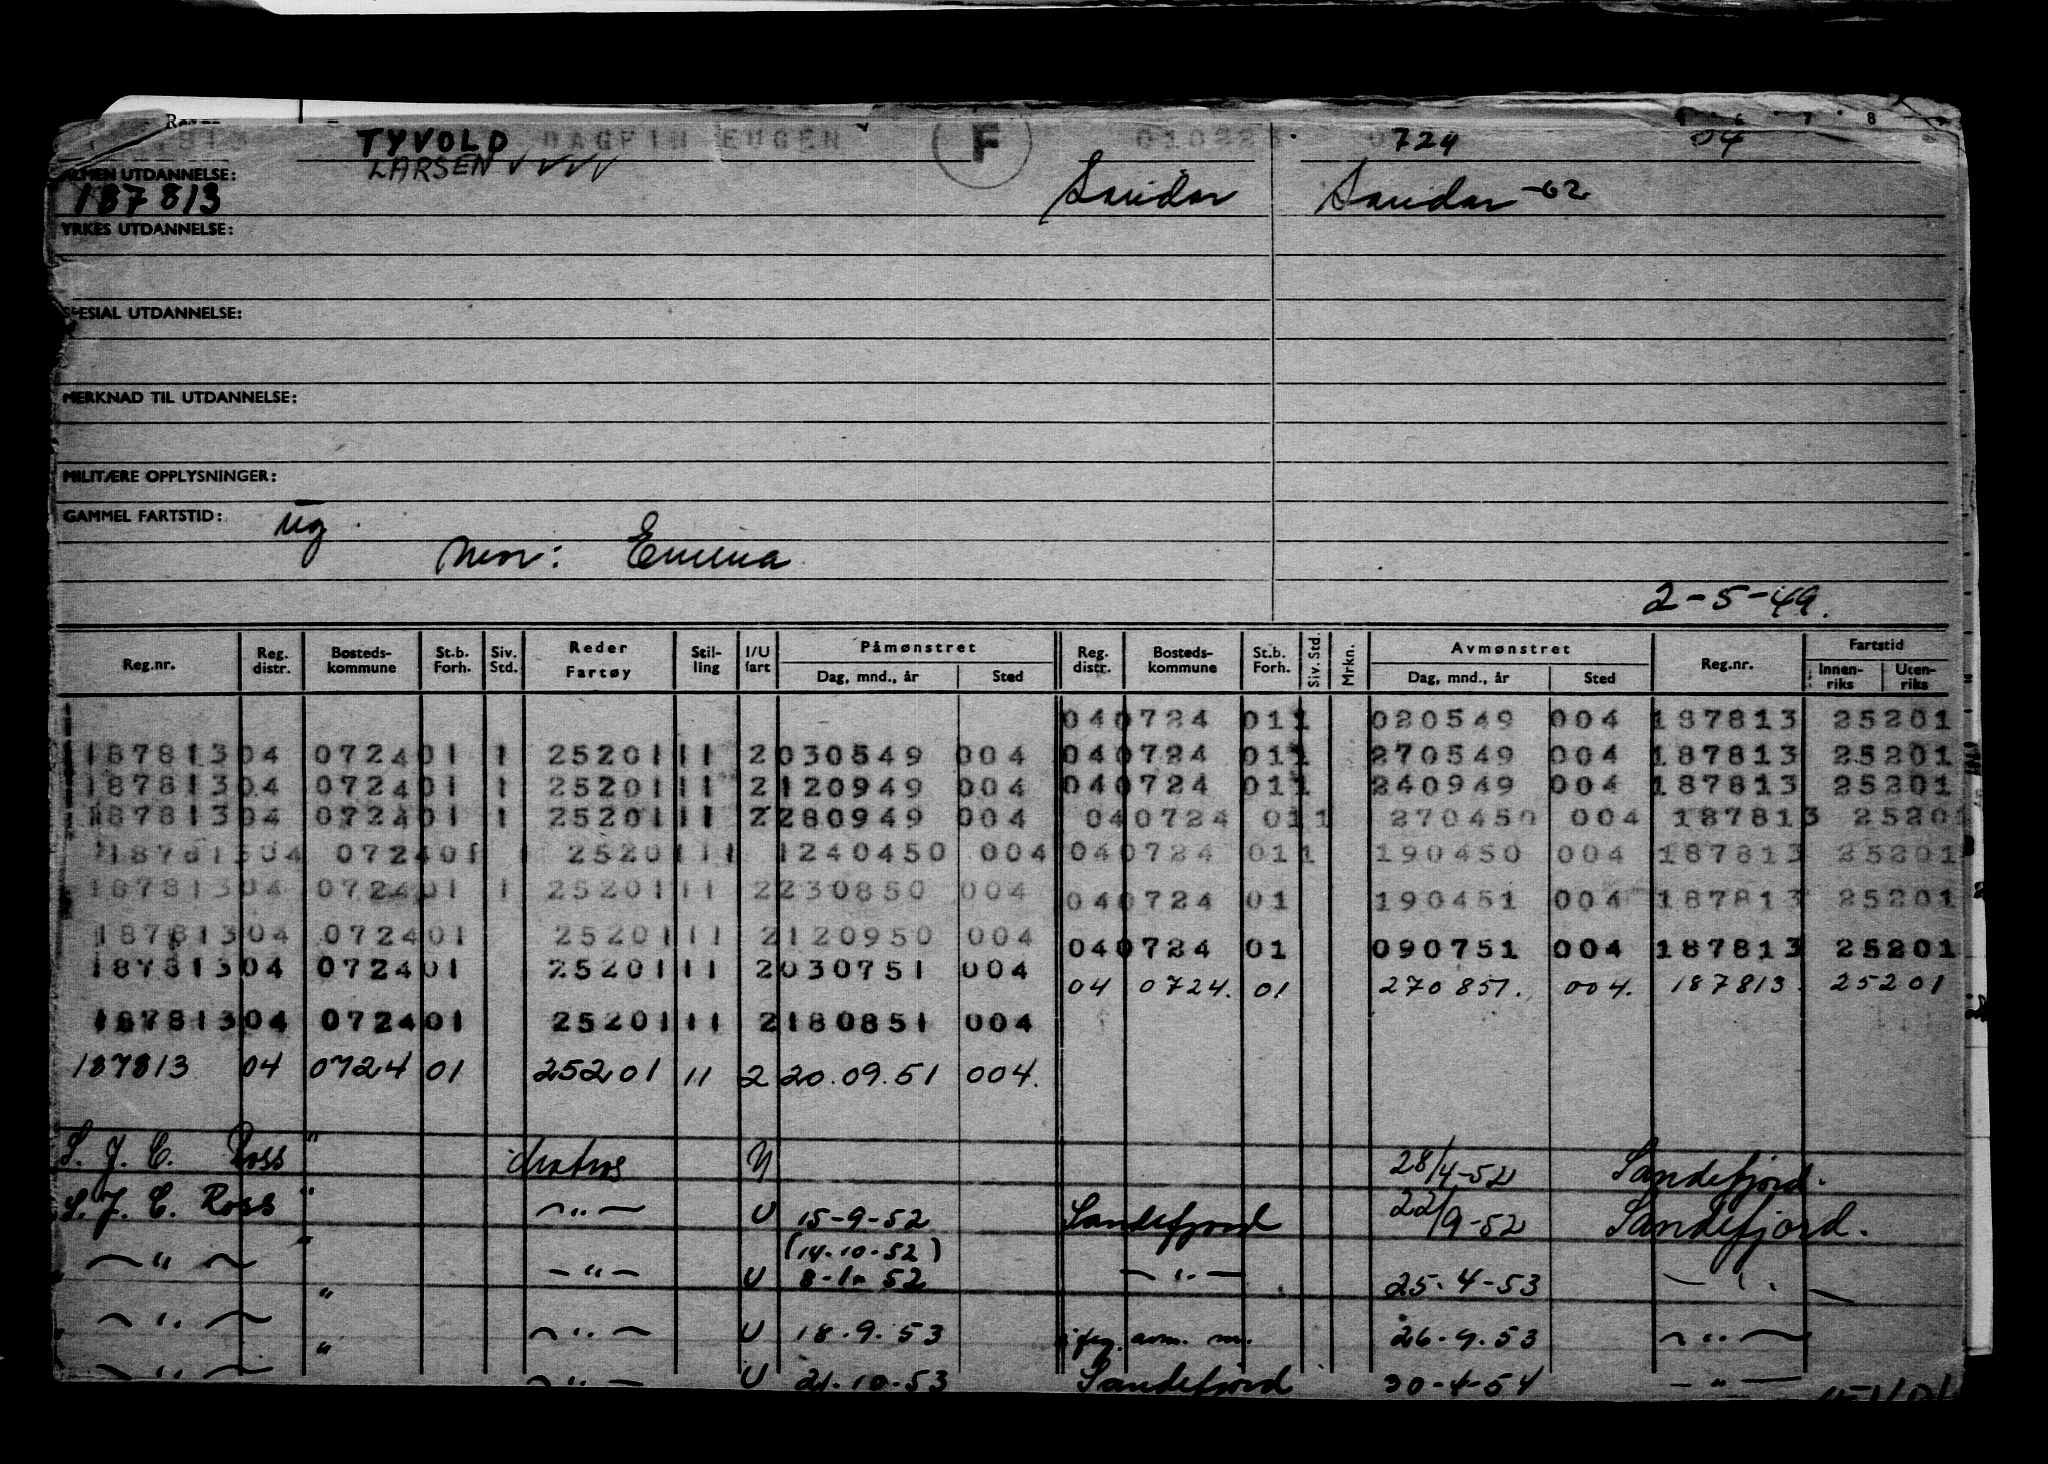 TYVOLD DAGFIN EUGEN F 010223 724 04
LARSEN VVVV
ALMEN UTDANNELSE:
187813 Sandar Sandar -62
YRKES UTDANNELSE:
SPESIAL UTDANNELSE:
MERKNAD TIL UTDANNELSE:
MILITÆRE OPPLYSNINGER:
GAMMEL FARTSTID: ug.
Mor: Emma
2-5-49.
Reg.nr. Reg. distr. Bosteds- kommune St.b. Forh. Siv. Std. Reder Fartøy Stil- ling I/U fart Påmønstret Dag, mnd., år Sted Reg. distr. Bosteds- kommune St.b. Forh. Siv. Std. Mrkn. Avmønstret Dag, mnd., år Sted Reg.nr. Fartstid Innen- riks Uten- riks
040724 011 020549 004 187813 25201
187813 04 0724 01 1 25201 11 2 030549 004 040724 011 270549 004 187813 25201
187813 04 0724 01 1 25201 11 2 120949 004 040724 011 240949 004 187813 25201
187813 04 0724 01 1 25201 11 2 280949 004 040724 011 270450 004 187813 25201
187813 04 0724 01 1 25201 11 1 240450 004 040724 011 190450 004 187813 25201
187813 04 0724 01 1 25201 11 2 230850 004 040724 01 190451 004 187813 25201
187813 04 0724 01 25201 11 2 120950 004 040724 01 090751 004 187813 25201
187813 04 0724 01 25201 11 2 030751 004 04 0724. 01 270851. 004. 187813. 25201
187813 04 0724 01 25201 11 2 180851 004
187813 04 0724 01 25201 11 2 20.09.51 004.
S. J. C. Ross " matros U 28/4-52 Sandefjord.
S. J. C. Ross " —"— U 15-9-52 Sandefjord 22/9-52 Sandefjord.
(14.10.52)
—"— " —"— U 8-10-52 —"— 25.4-53 —"—
—"— " —"— U 18.9.53 avm. 26.9.53 —"—
—"— " —"— U 21.10.53 Sandefjord 30-4-54 —"—